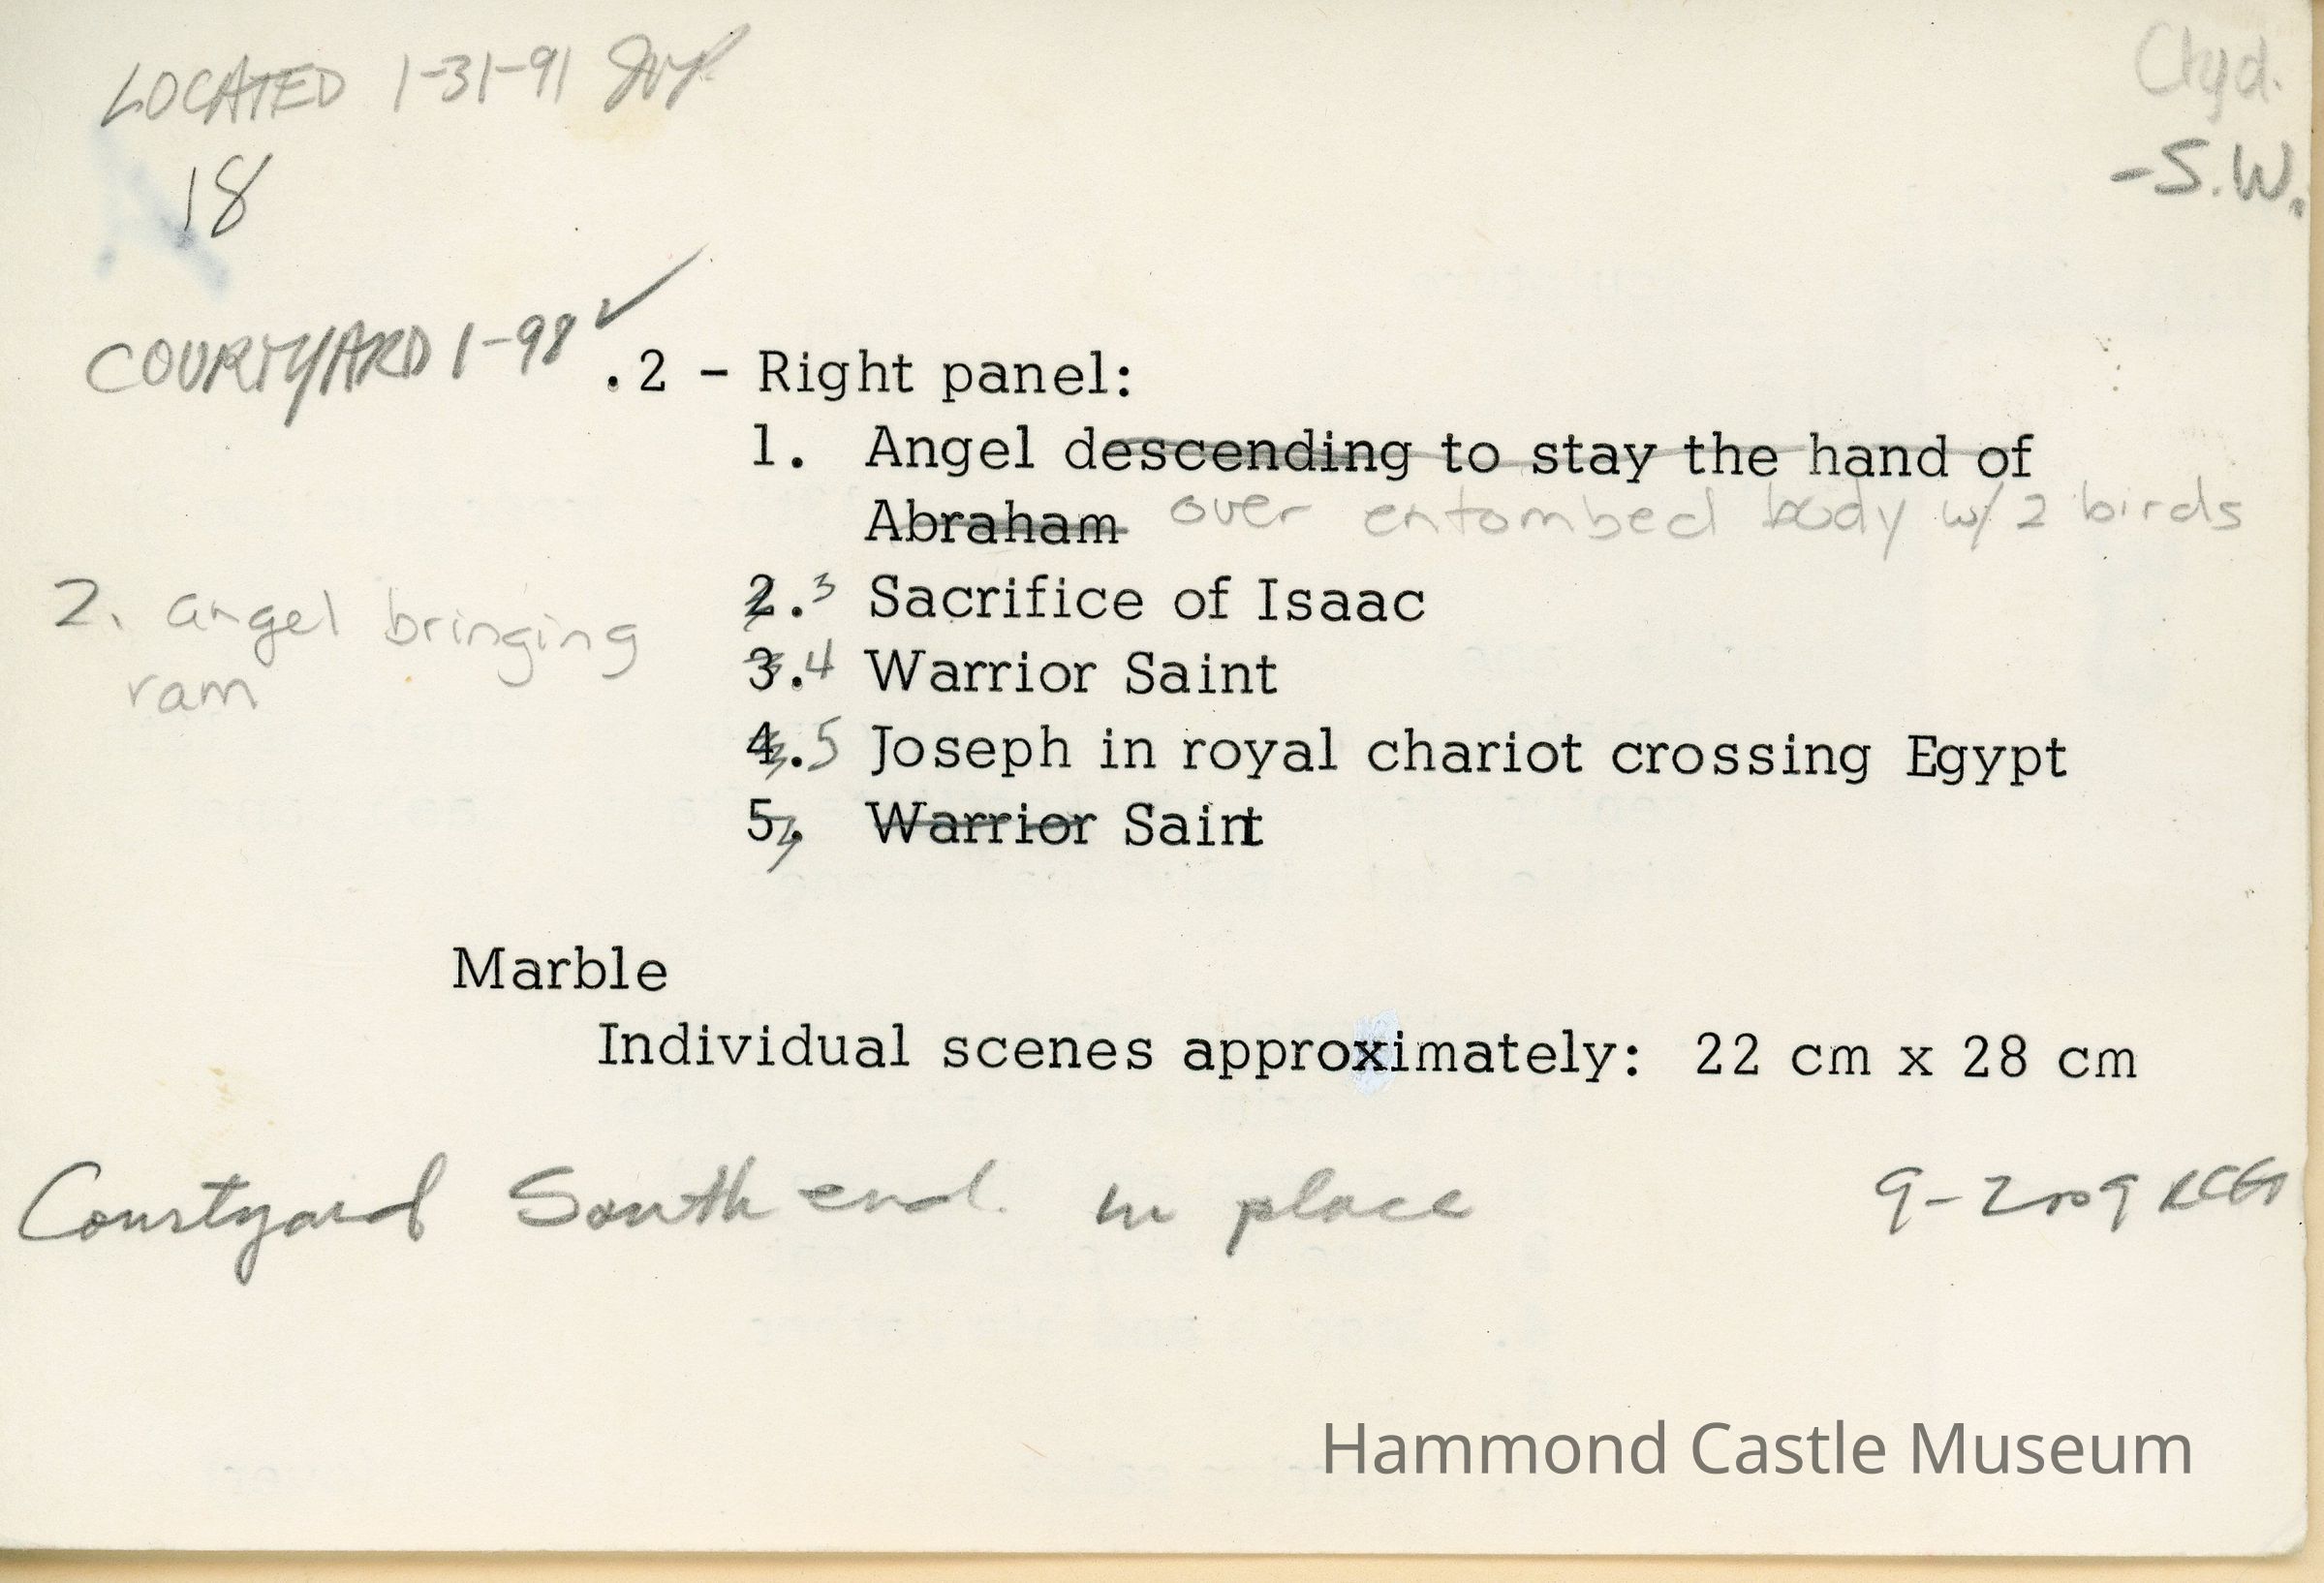 LOCATED 1-31-91
Ctyd.
-S.W.
18
COURTYARD 1-98 ✓
.2 - Right panel:
1. Angel descending to stay the hand of
Abraham over entombed body w/ 2 birds
2. angel bringing
ram
2.3 Sacrifice of Isaac
3.4 Warrior Saint
4.5 Joseph in royal chariot crossing Egypt
5. Warrior Saint
Marble
Individual scenes approximately: 22 cm x 28 cm
Courtyard South end. in place 9-2009
Hammond Castle Museum